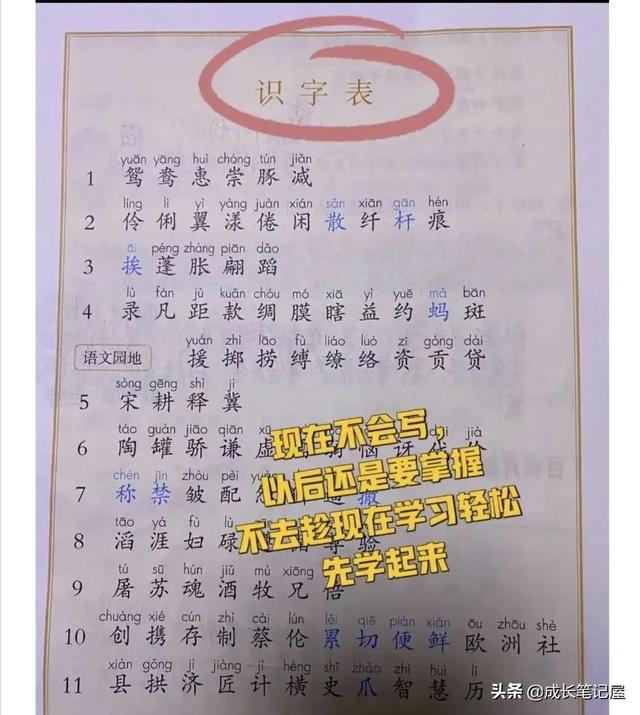 识字表
yuān yāng huì chóng tún jiǎn
1 鸳 鸯 惠 崇 豚 减
líng lì yì yàng juàn xián sǎn xiān gān hén
2 伶 俐 翼 漾 倦 闲 散 纤 杆 痕
āi péng zhàng piān dǎo
3 挨 蓬 胀 翩 蹈
lù fán jù kuǎn chóu mó xiā yì yuē mà bān
4 录 凡 距 款 绸 膜 瞎 益 约 蚂 斑
yuán zhì lāo fù liáo luò zī gòng dài
语文园地 援 掷 捞 缚 缭 络 资 贡 贷
sòng gēng shì jì
5 宋 耕 释 冀
táo guàn jiāo qiān xū jià
6 陶 罐 骄 谦 虚 恼 讶 代 价
chèn jīn zhòu pèi
7 称 禁 皱 配 撒
tāo yá fù lù
8 滔 涯 妇 碌 验
tú sū hún jiǔ mù xiōng
9 屠 苏 魂 酒 牧 兄
chuàng xié cún zhì cài lún lěi qiē pián xiān ōu zhōu shè
10 创 携 存 制 蔡 伦 累 切 便 鲜 欧 洲 社
xiàn gǒng jì jiàng jì héng shǐ zhǎo zhì huì lì
11 县 拱 济 匠 计 横 史 爪 智 慧 历
现在不会写，
以后还是要掌握
不去趁现在学习轻松
先学起来
头条 @成长笔记屋